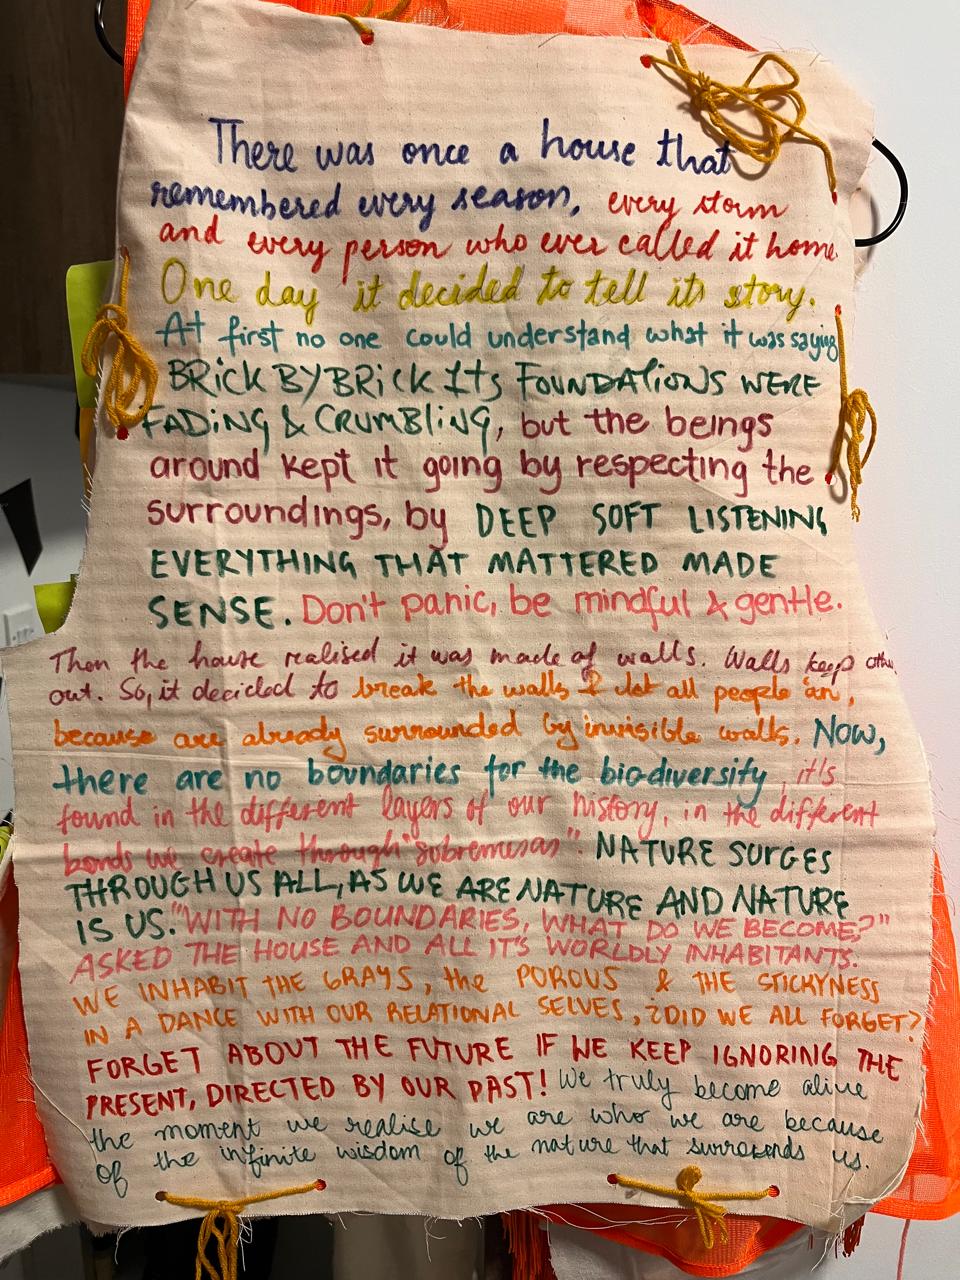 There was once a house that
remembered every season, every storm
and every person who ever called it home.
One day it decided to tell its story.
At first no one could understand what it was saying
BRICK BY BRICK ITS FOUNDATIONS WERE
FADING & CRUMBLING, but the beings
around kept it going by respecting the
surroundings, by DEEP SOFT LISTENING
EVERYTHING THAT MATTERED MADE
SENSE. Don't panic, be mindful & gentle.
Then the house realised it was made of walls. Walls keep
out. So, it decided to break the walls & let all people in,
because are already surrounded by invisible walls. Now,
there are no boundaries for the bio-diversity, it's
found in the different layers of our history, in the different
bonds we create through "sobremesas". NATURE SURGES
THROUGH US ALL, AS WE ARE NATURE AND NATURE
IS US. "WITH NO BOUNDARIES, WHAT DO WE BECOME?"
ASKED THE HOUSE AND ALL IT'S WORLDLY INHABITANTS.
WE INHABIT THE GRAYS, the POROUS & THE STICKYNESS
IN A DANCE WITH OUR RELATIONAL SELVES, ¿DID WE ALL FORGET?
FORGET ABOUT THE FUTURE IF WE KEEP IGNORING THE
PRESENT, DIRECTED BY OUR PAST! We truly become alive
the moment we realise we are who we are because
of the infinite wisdom of the nature that surrounds us.